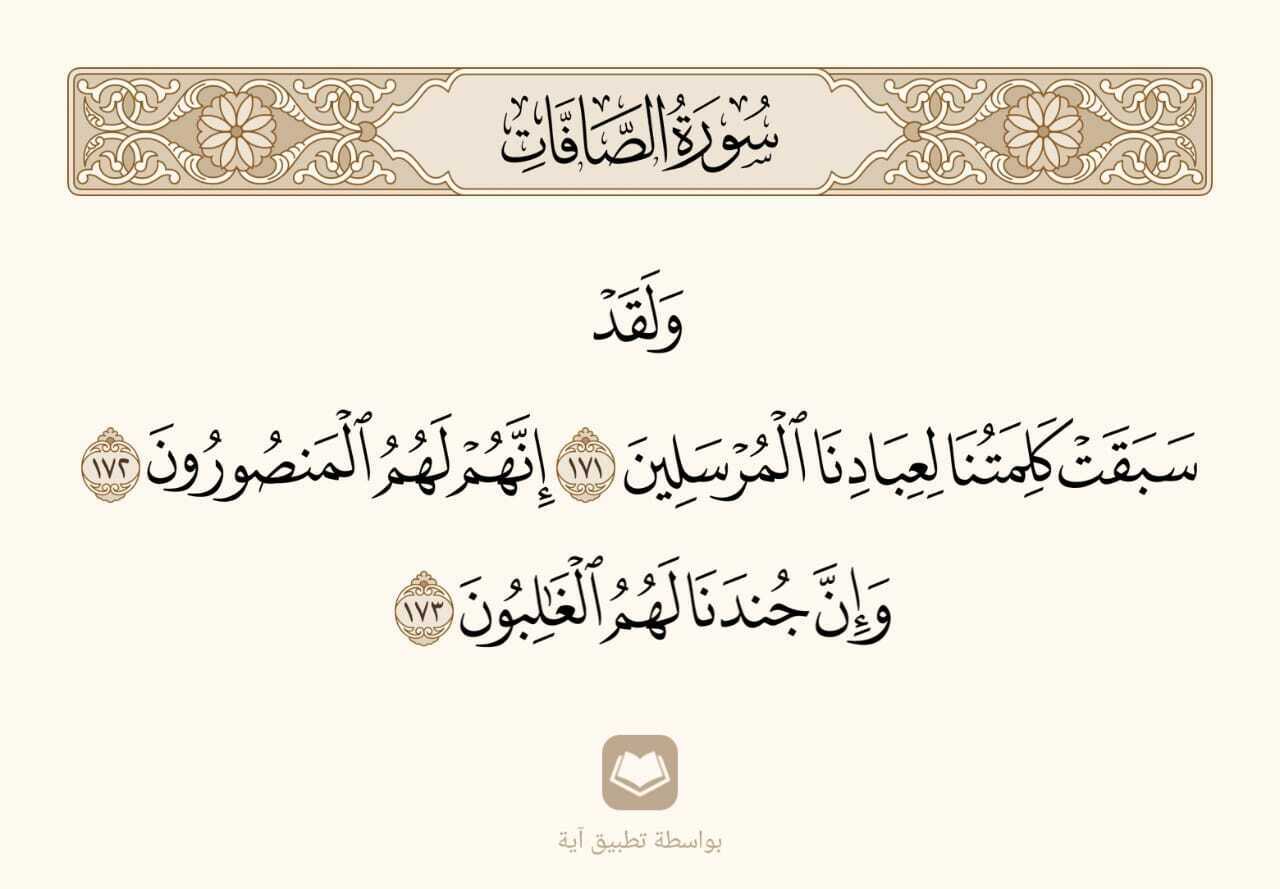 سُورَةُ الصَّافَّاتِ
وَلَقَدْ
سَبَقَتْ كَلِمَتُنَا لِعِبَادِنَا ٱلْمُرْسَلِينَ ١٧١ إِنَّهُمْ لَهُمُ ٱلْمَنصُورُونَ ١٧٢
وَإِنَّ جُندَنَا لَهُمُ ٱلْغَٰلِبُونَ ١٧٣
بواسطة تطبيق آية